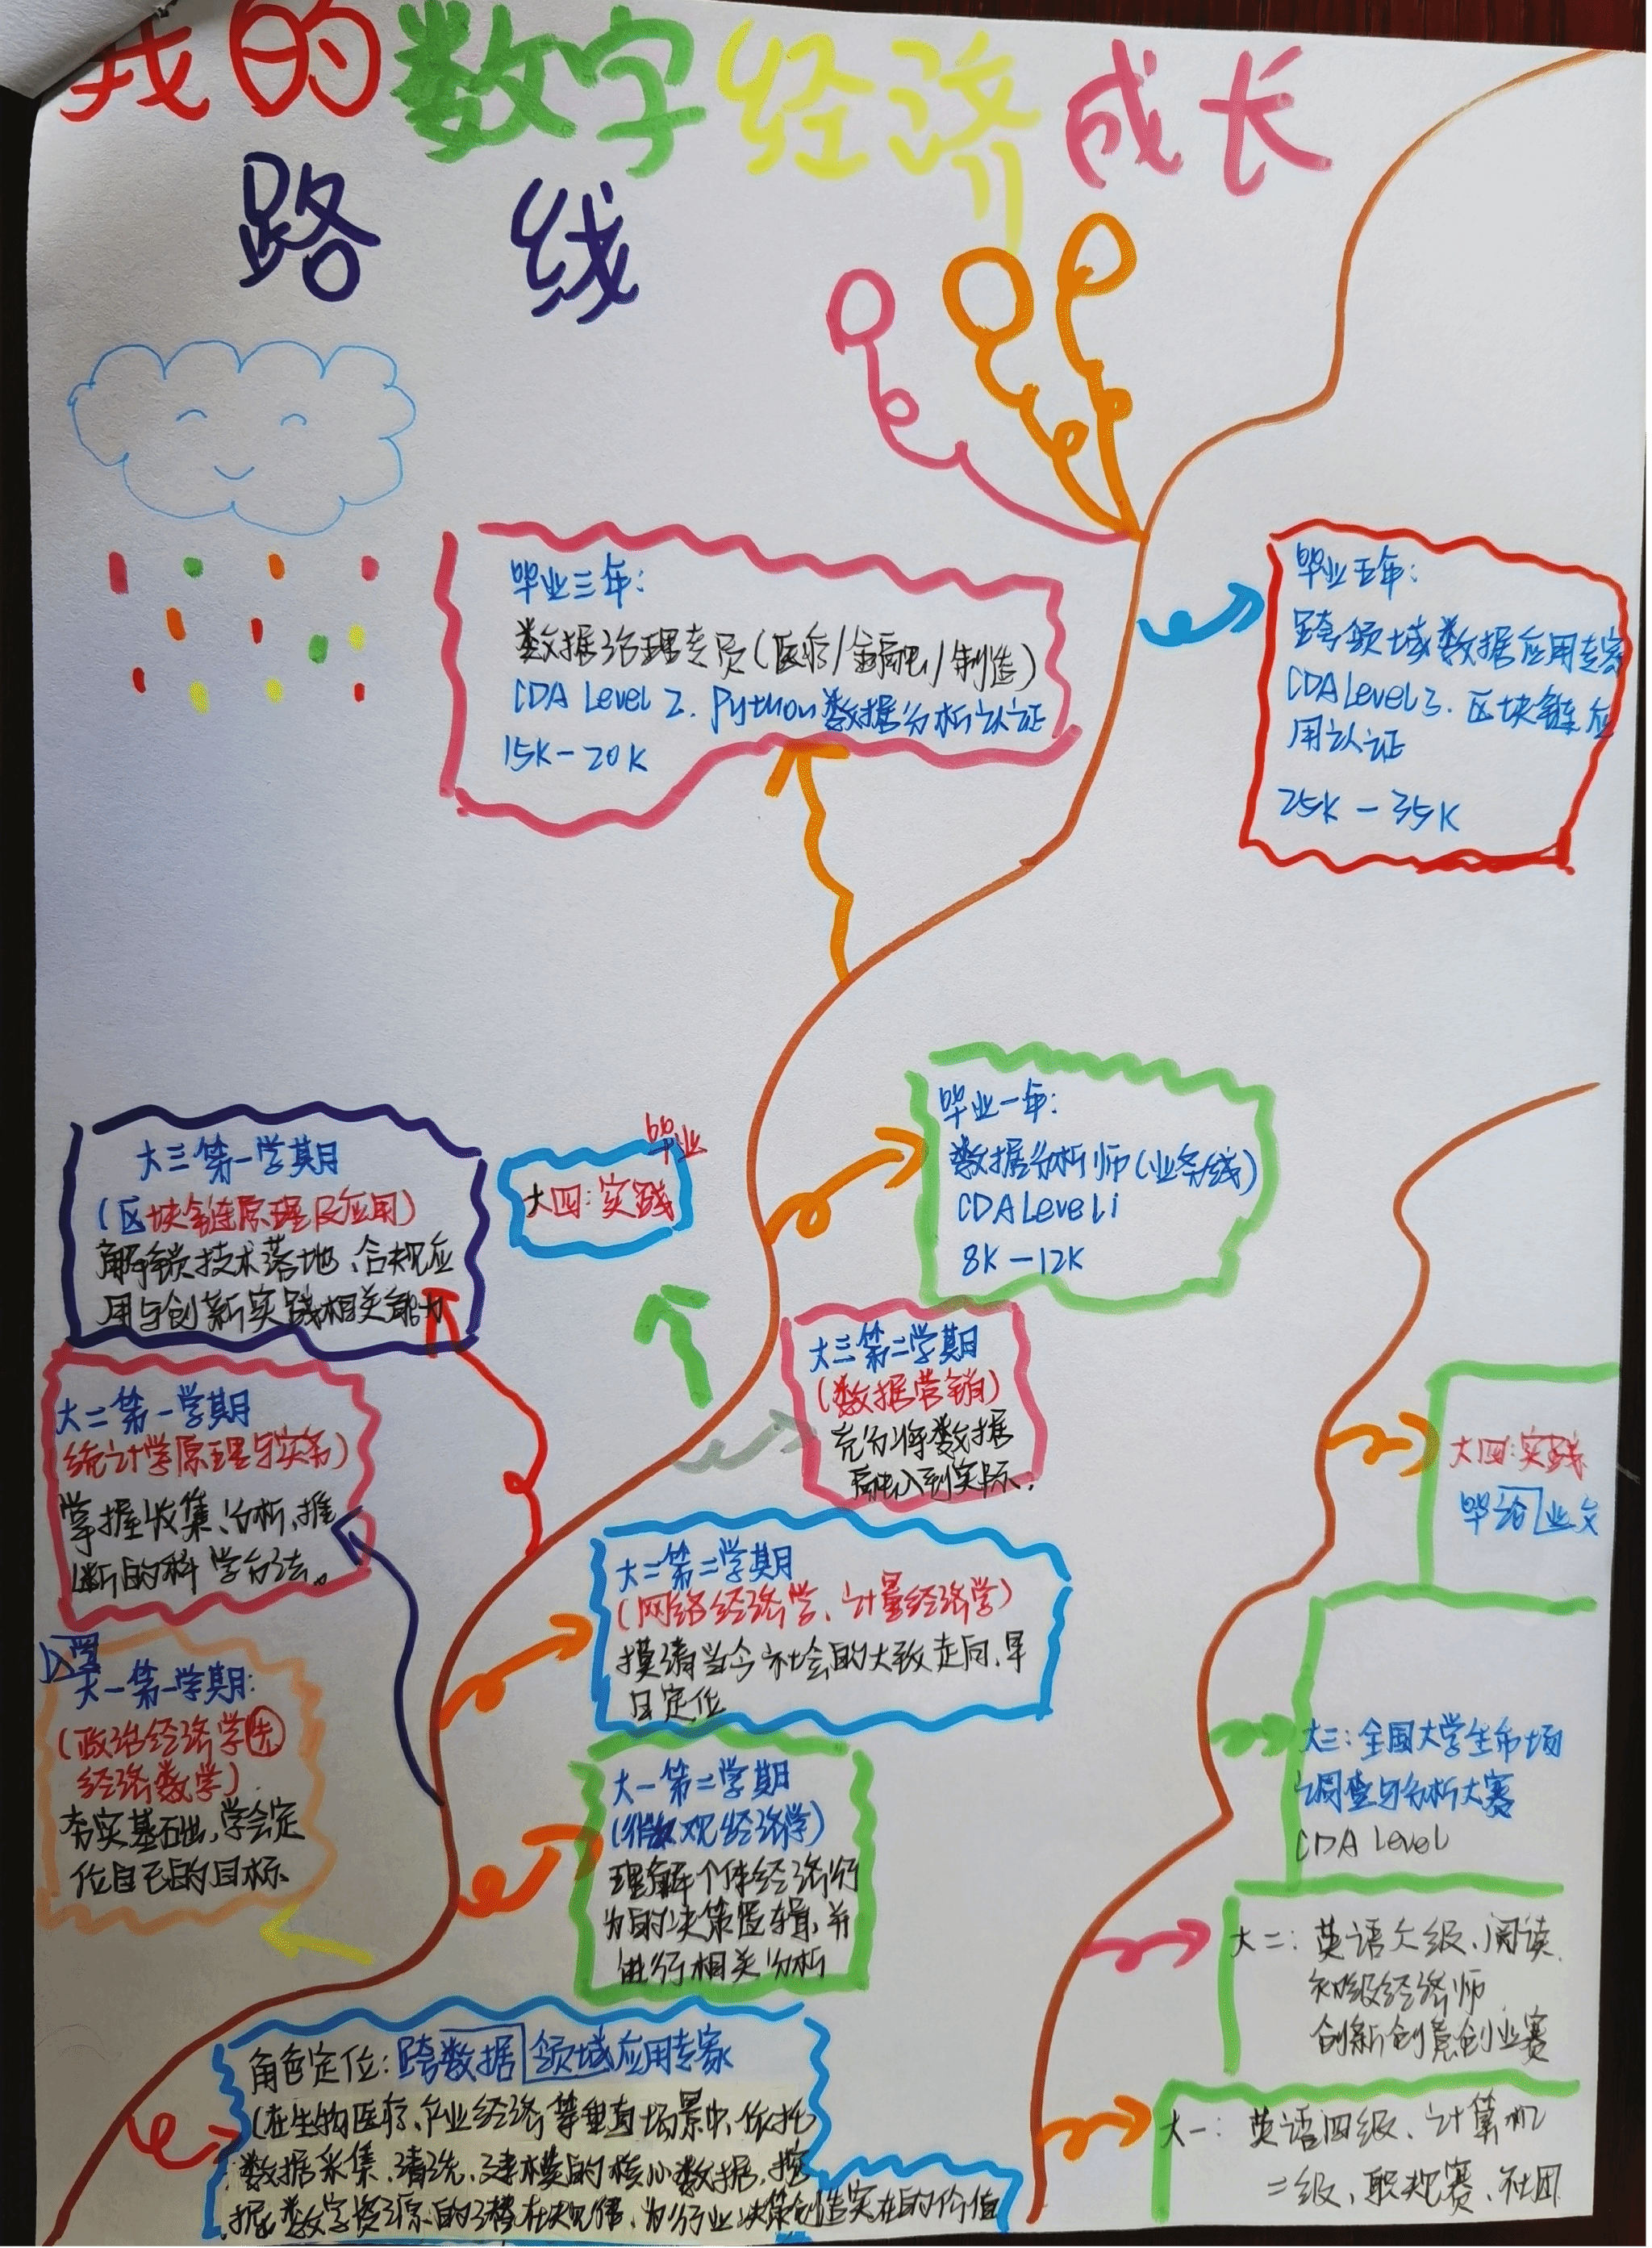 我的数字经济成长
路线
毕业三年:
数据治理专员(医疗/金融/制造)
CDA Level 2. Python数据分析认证
15K-20K
毕业五年:
跨领域数据应用专家
CDA Level 3. 区块链应
用认证
25K-35K
毕业一年:
数据分析师(业务线)
CDA Level 1
8K-12K
毕业
大四:实践
大三第一学期
(区块链原理及应用)
解锁技术落地、合规应
用与创新实践相关能力
大三第二学期
(数据营销)
充分将数据
融入到实际.
大二第一学期
(统计学原理与实务)
掌握收集、分析、推
断的科学方法。
大二第二学期
(网络经济学、计量经济学)
摸清当今社会的大致走向,早
日定位
入学
大一第一学期:
(政治经济学
经济数学)
夯实基础,学会定
位自己的目标.
大一第二学期
(微观经济学)
理解个体经济行
为的决策逻辑,并
进行相关分析
角色定位:跨数据领域应用专家
(在生物医疗、产业经济等垂直场景中,依托
数据采集、清洗、建模的核心数据,挖
掘数字资源的潜在规律,为行业决策创造实在的价值
大四:实践
毕论业文
大三:全国大学生市场
调查与分析大赛
CDA Level
大二:英语六级、阅读.
初级经济师
创新创意创业赛
大一:英语四级、计算机
二级、职规赛、社团